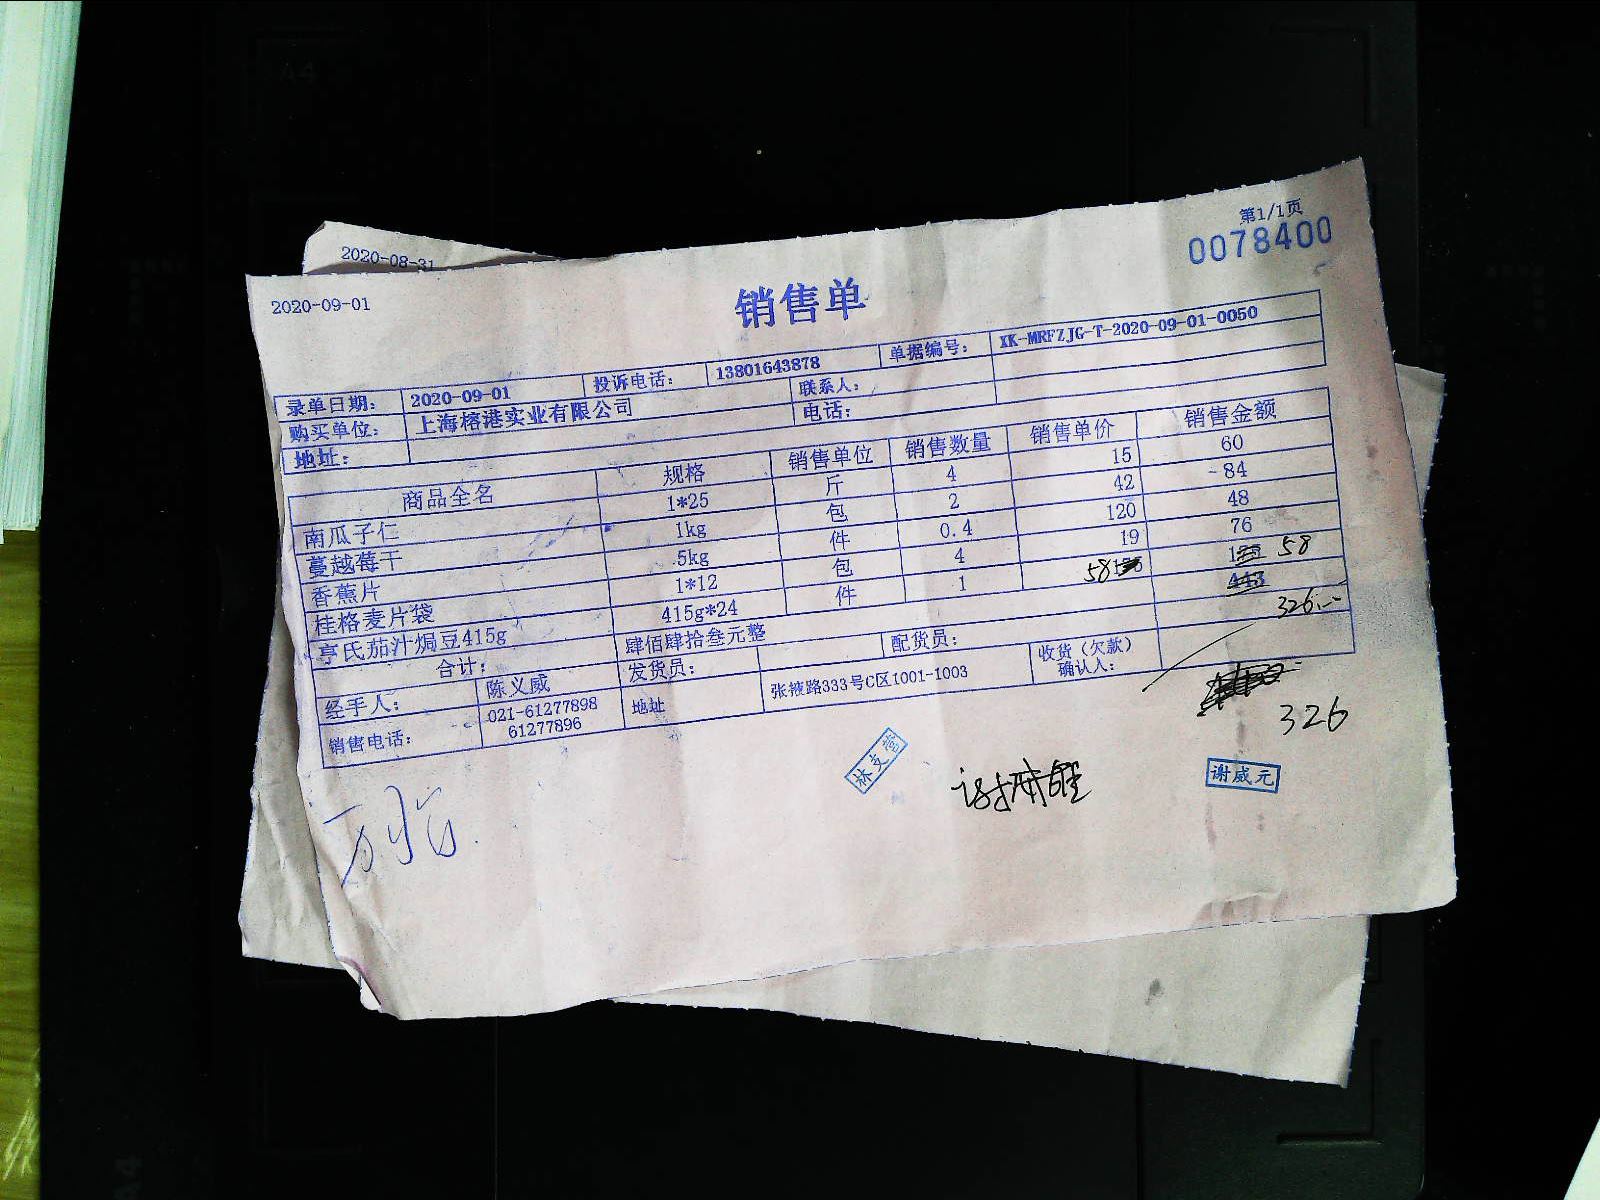 2020-08-31
第1/1页
0078400
2020-09-01
销售单
录单日期： 2020-09-01 投诉电话： 13801643878 单据编号： XK-MRFZJG-T-2020-09-01-0050
购买单位： 上海榕港实业有限公司 联系人：
地址： 电话：
商品全名 规格 销售单位 销售数量 销售单价 销售金额
南瓜子仁 1*25 斤 4 15 60
蔓越莓干 1kg 包 2 42 84
香蕉片 5kg 件 0.4 120 48
桂格麦片袋 1*12 包 4 19 76
亨氏茄汁焗豆415g 415g*24 件 1 58 58
合计： 肆佰肆拾叁元整 443
326.--
经手人： 陈义威 发货员： 配货员： 收货（欠款）确认人：
销售电话： 021-61277898 61277896 地址 张掖路333号C区1001-1003
326
谢威元